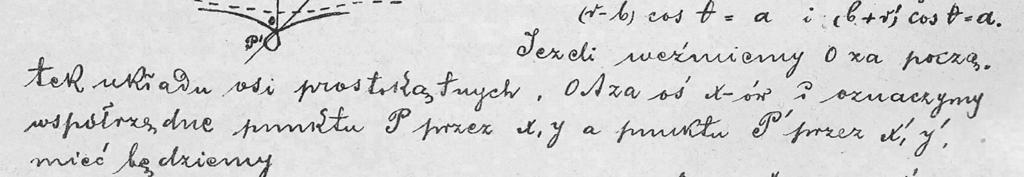 (r-b) cos t = a i (b+r') cos t = a.
P'
Jezeli weźmiemy O za począ-
tek układu osi prostokątnych, OA za oś x-ów i oznaczymy
współrzędne punktu P przez x, y a punktu P' przez x', y',
mieć będziemy